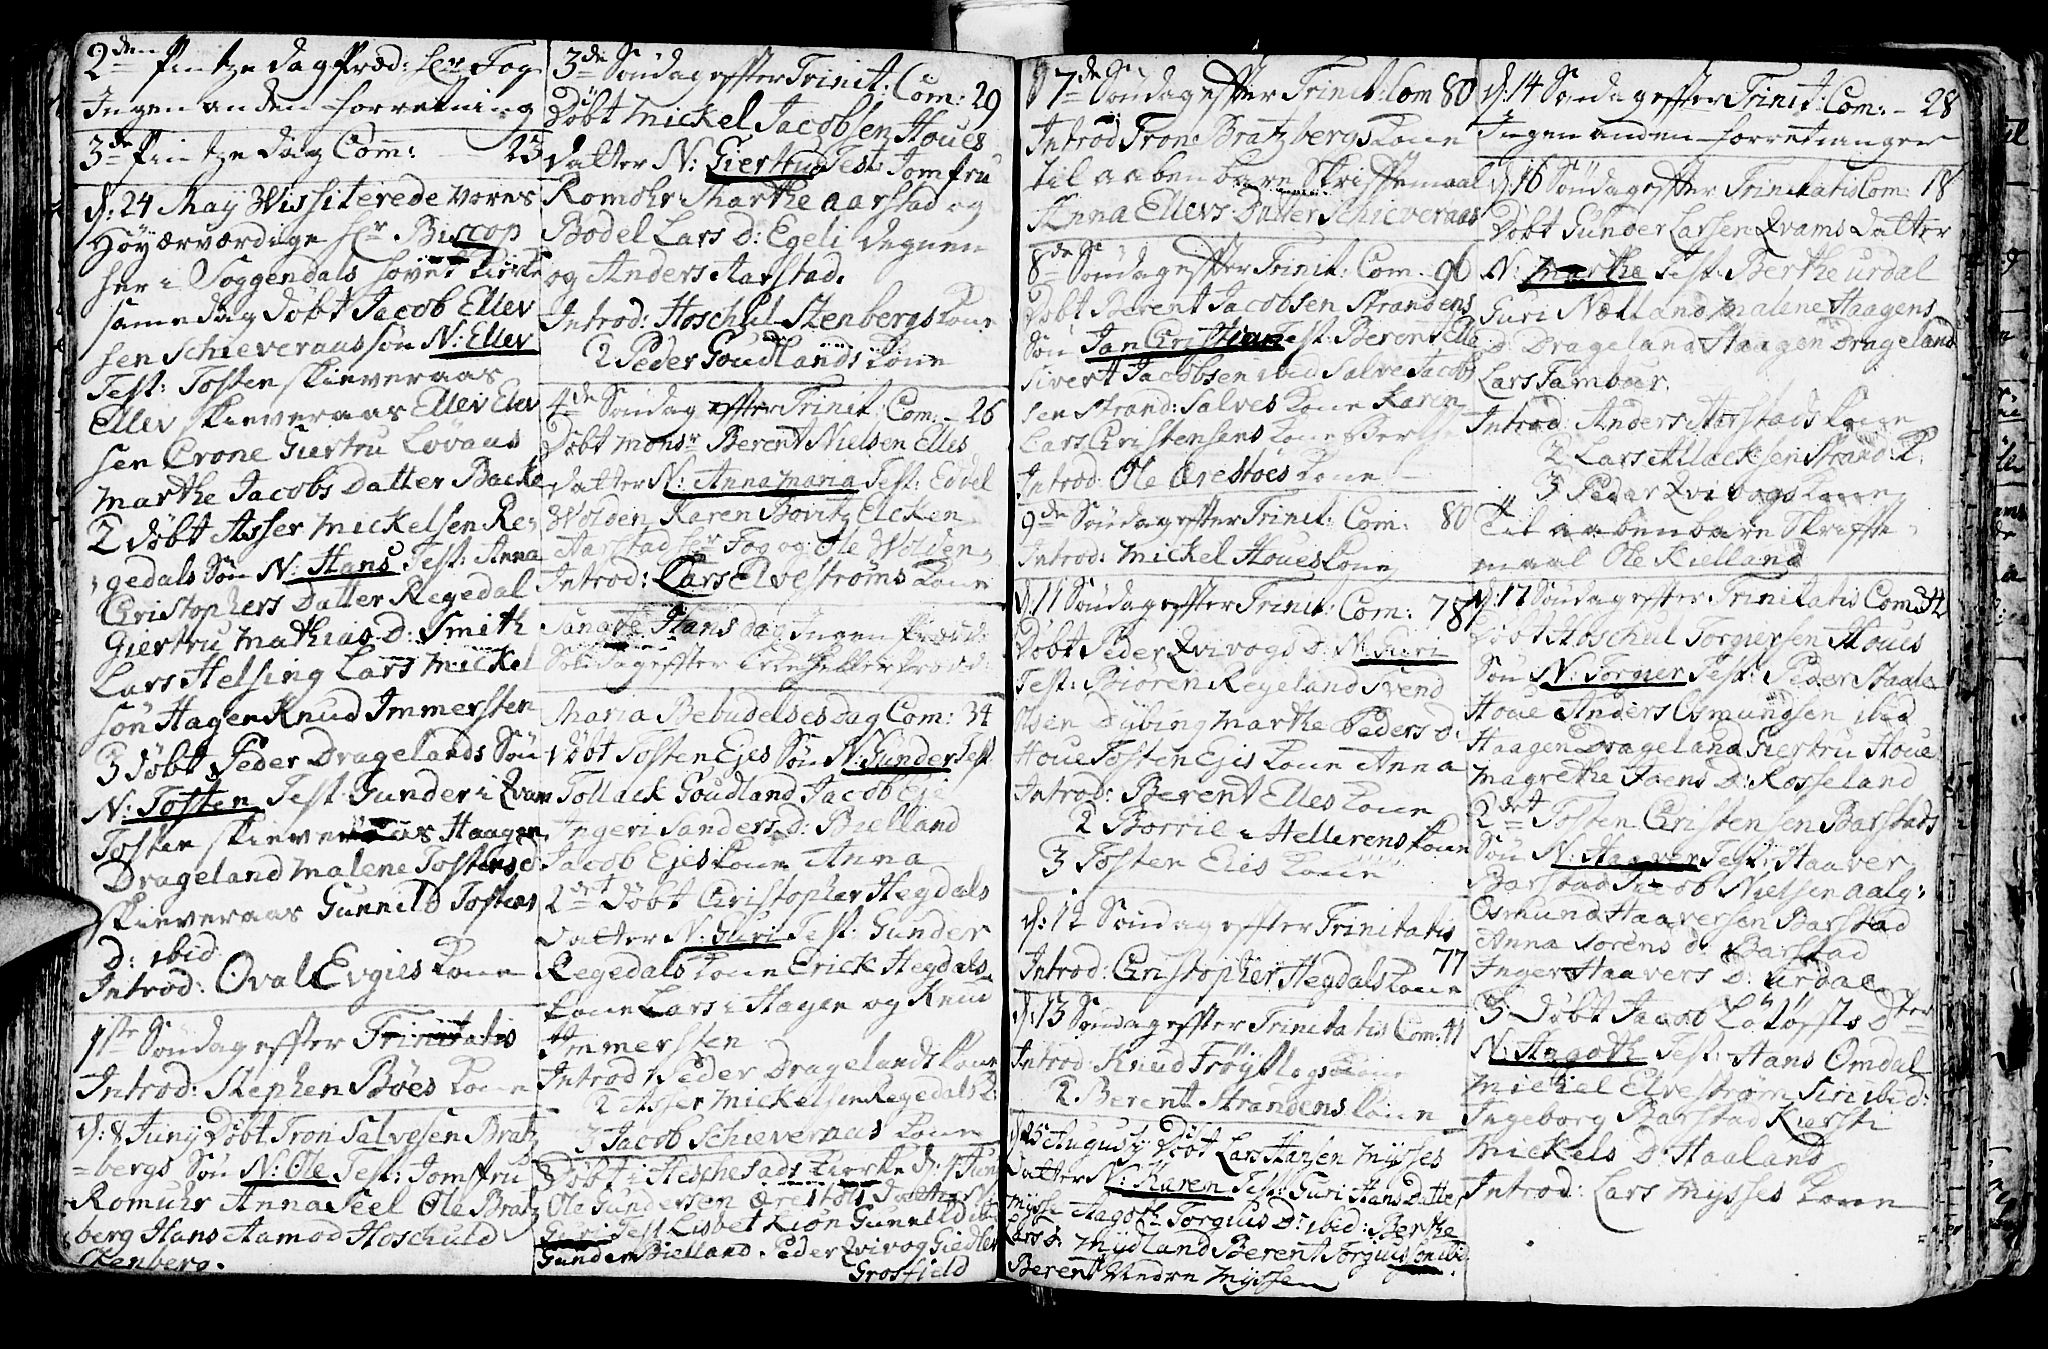 2den Pintze dag Præd: Hr Fog
Ingen anden forretning
3de Pintze dag Com: 23
d: 24 Maÿ Wissiterede vores
Höÿærværdige Hr Biscop
her i Soggendals hoved Kirke
same dag döbt Jacob Ellev
sen Schieveraas sön N: Ellev
Test: Tosten Skieveraas
Ellev Skieveraas Ellev Elev
sen Crone Giertru Lövaas
Marthe Jacobs Datter Backe
2 döbt Asser Mickelsen Re,
gedals Sön N: Hans Test: Anna
Christophers Datter Regedal
Giertru Mathias D: Smith
Lars Helsing Lars Mickel
sön Hagen Knud Immersten
3 döbt Peder Dragelands Sön
N: Tosten Test Gunder i Qvam
Tosten Skieveraas Haagen
Drageland Malene Tostens d
Skieveraas Gunnild Tostens
D: ibid
Introd: Oval Evgies Kone
1ste Söndag effter Trinitatis
Introd: Stephen Böes Kone
d: 8 Junÿ Döbt Tron Salvesen Bratz
=bergs Sön N: Ole Test: Jomfru
Romuhr Anna Seel Ole Bratz
berg Hans Aamod Hoschuld
Stenberg.
3de S Söndag effter Trinit: Com: 29
Döbt Mickel Jacobsen Houes
Datter N: Giertru Test: Jomfru
Romohr Marthe Aarstad og
Bodel Lars D: Egeli Degnen
og Anders Aarstad.
Introd: Hoschul Stenbergs Kone
2 Peder Goudlands Kone
4de Söndag effter Trinit: Com: 26
Döbt Monsr Berent Nielsen Elles
Datter N: Anna Maria Test: Edvel
Wolden Karen Bovitz Elcken
Aarstad Hr Fog og Ole Wolden,
Introd: Lars Elveströms Kone
Sancte Hans dag Ingen Præd:
Maria Bebudelses Dag Com: 34
Döbt Tosten Ejes Sön N: Gunder Test
Tollack Goudland Jacob Eje
Ingeri Sanders D: Bielland
Jacob Ejes Kone Anna
2det Döbt Christopher Hegdals
Datter N: Guri Test: Gunder
Regedals Kone Erick Hegdals
Kone Lars i Hagen og Knud
Immersten
Introd 1 Peder Dragelands Kone
2 Asser Mickelsen Regedals K:
3 Jacob Schieveraas Kone
Döbt i Heschestads Kiorke d: 9 Juny
Ole Gundersen Ærestöls datter N:
Guri Test Lisbet Lion Gunnild ibid
Gunder Bielland. Peder Qvivog Giedler
Grosfield
7de S Söndag effter Trinit: Com 80
Introd Tron Bratzbergs Kone
til aabenbare Skriftemaal
Anna Ellevs Datter Schieveraas
8de S Söndag effter Trinit: Com: 90
Döbt Berent Jacobsen Strandens
Sön Jan Christian Test: Beront Elle
Sivert Jacobsen ibid Salve Jacob
sen Strand: Salves Kone Karen
Lars Christensens Kone Berthe
Introd: Ole Ærestöes Kone
9de Söndag effter Trinit: Com: 80
Introd: Mickel Houes Kone
d: 11 Söndag effter Trinit: Com: 78
Döbt Peder Qvivogs D: N: Guri
Test: Biören Regeland Svend
Olsen Dübing Marthe Peders D:
Houe Tosten Ejes Kone Anna
Introd: Berent Elles Kone
2 Börrile Hellerens Kone
3 Tosten Eies Kone
d: 12 Söndag effter Trinitatis
77
Introd: Christopher Hegdals Kone
d: 13 S Söndag effter Trinitatis Com: 41
Introd: Knud Fröÿtlogs Kone
2 Berent Strandens Kone
d 25 Augusty Döbt Lars Hansen Mÿsses
Datter N: Karen Test: Guri Hans Datter
Mysse Aagoth Torgius Dr ibid: Berthe
Lars D: Mydland Berent Torgiussen ibid
Berent Undre Mÿssen
d: 14 Söndag effter Trinit: Com: - 28
Ingen anden forretninger
d: 16 Söndag effter Trinitatis Com: 18
Döbt Gunder Larsen Qvams Datter
N: Marthe Test: Berthe Urdal
Guri Netland Malene Haagens
D: Drageland Haagen Drageland
Lars Tambour.
Introd: Anders Aarstads Kone
2 Lars Aslacksen Strand: K:
3 Peder Qvivogs Kone
Til aabenbare Skriffte,
maal Ole Kielland
d: 17 Söndag effter Trinitatis Com: 34
Döbt Hoschul Torgersen Houes
Sön N: Torger Test: Peder Staale
Houe Anders Osmundsen ibid
Haagen Drageland Giertru Houe
Magrethe Jaens D: Rosseland
2det Tosten Christensen Barstads
Sön N: Haaver Test: Haaver
Barstad Jacob Nielsen aalg:
Osmund Haaversen Barstad
Anna Sörens d: Barstad
Inger Haavers D: Urdal
3 Döbt Jacob Lötöffts Dter
N: Aagoth Test: Hans Omdal
Mickel Elveström Siri ibid:
Ingeborg Barstad Kiersti
Mickels D Haaland
Introd: Lars Mysses Kone